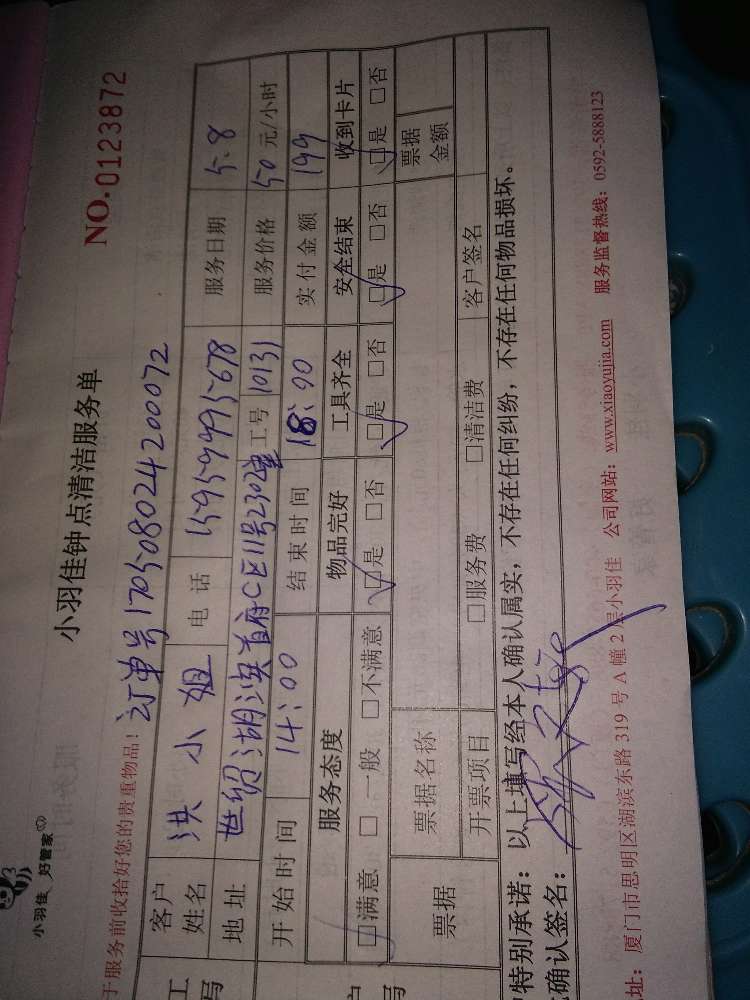 小羽佳 好管家
小羽佳钟点清洁服务单
NO.0123872
于服务前收拾好您的贵重物品! 订单号170508024200072
客户姓名 洪小姐 电话 15959995678 服务日期 5.8
地址 世贸湖滨首府CE11号230 工号 10131 服务价格 50 元/小时
开始时间 14:00 结束时间 18:00 实付金额 199
服务态度 物品完好 工具齐全 安全结束 收到卡片
□满意 □一般 □不满意 □是 □否 □是 □否 □是 □否 □是 □否
票据 票据名称 票据金额
开票项目 □服务费 □清洁费 客户签名
特别承诺:以上填写经本人确认属实,不存在任何纠纷,不存在任何物品损坏。
确认签名:
址:厦门市思明区湖滨东路 319 号 A 幢 2 层小羽佳 公司网站:www.xiaoyujia.com 服务监督热线:0592-5888123